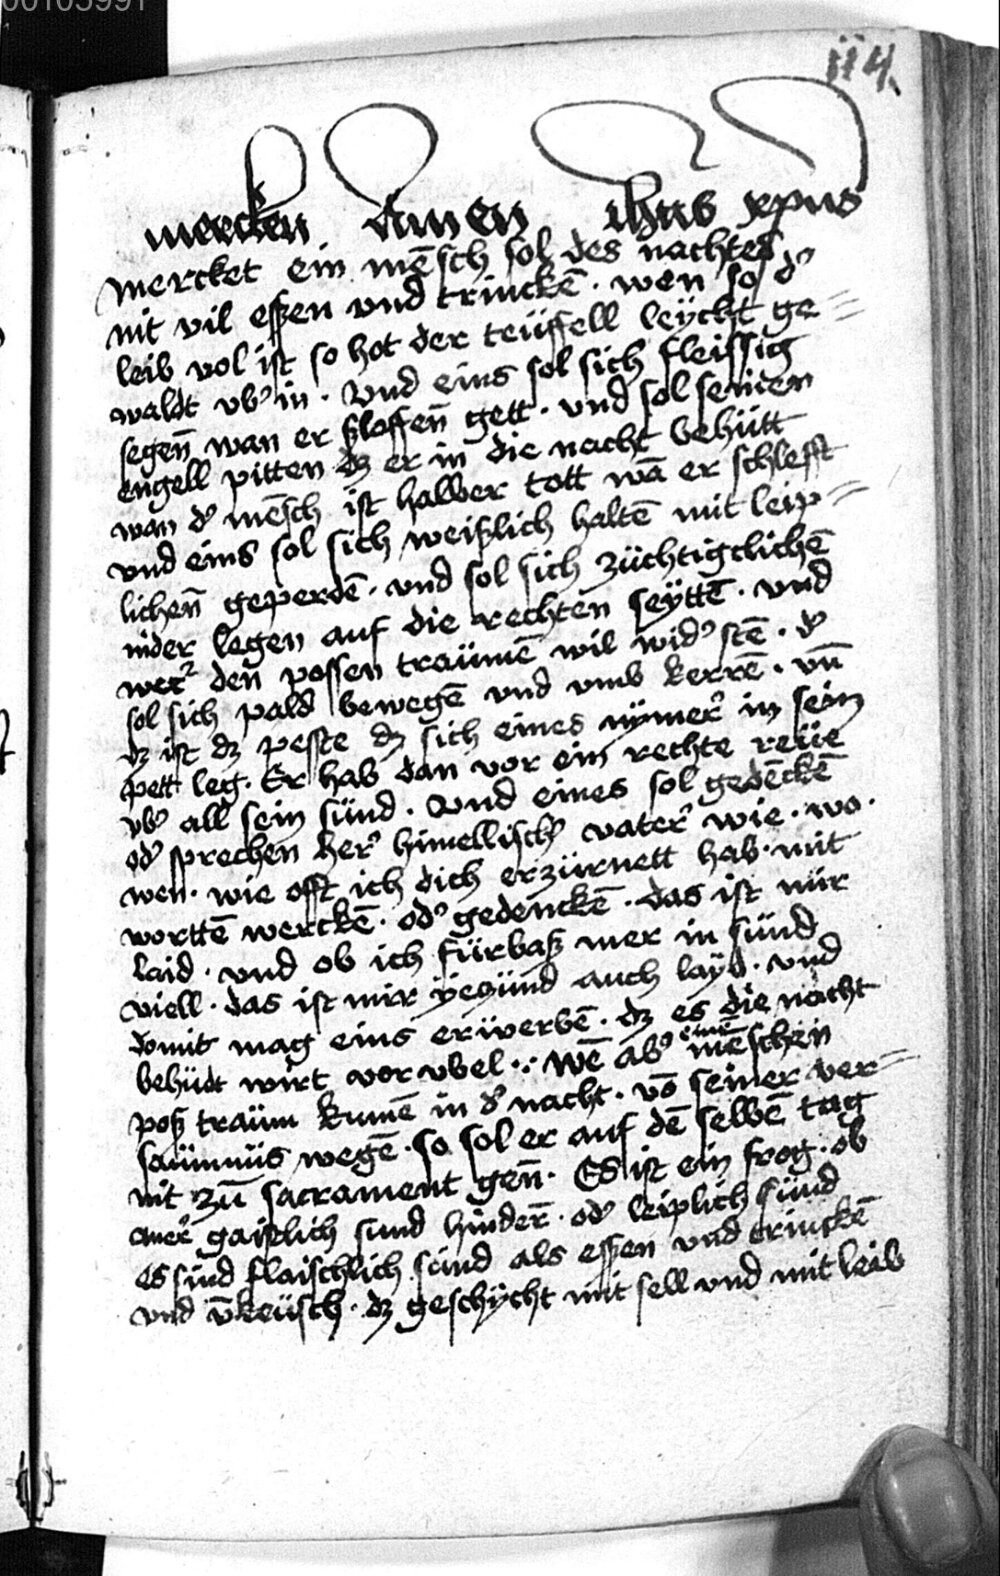 00105991
114
mercken Amen ihus xpus
Mercket ein mēsch sol des nachtes
nit vil essen vnd trinckē · wen so d'
leib vol ist so hot der teüffell leÿcht ge=
waldt vb' in · Vnd eins sol sich fleissig
segen̄ wan er slaffen̄ gett · vnd sol seinen
engell pitten dz er in die nacht behütt
wan d' mēsch ist halber tott wā er schlefft
vnd eins sol sich weißlich haltē mit leip=
lichen̄ geperdē · vnd sol sich züchtigclichē
nider legen auf die rechten seÿttē · vnd
wer den̄ possen traümē wil wid' stē · d'
sol sich pald bewegē vnd vmb kerrē · vn̄
dz ist dz peste dz sich eines nÿmer in sein
pett leg · Er hab dan vor ein rechte reüe
vb' all sein sünd · Vnd eines sol gedēckē
od' sprechen her himellisch' vater wie · wo ·
wen · wie offt ich dich erzürnett hab · mit
worttē werckē · od' gedenckē · das ist mir
laid · vnd ob ich fürbaß mer in sünd
viell · das ist mir ÿeczund auch laÿd · vnd
domit mag eins erwerbē · dz es die nacht
behüdt wirt vor vbel · : wē ab' einē mēschen
poß traüm kumē in d' nacht · vō seiner ver=
saümnüs wegē · so sol er auf dē selbē tag
nit zū sacrament gen̄ · Es ist ein frog · ob
aner gaistlich sund hinder · od' leiplich sünd
es sind flaischlich sünd als essen vnd trinckē
vnd v̄keüsch · dz geschÿcht mit sell vnd mit leib